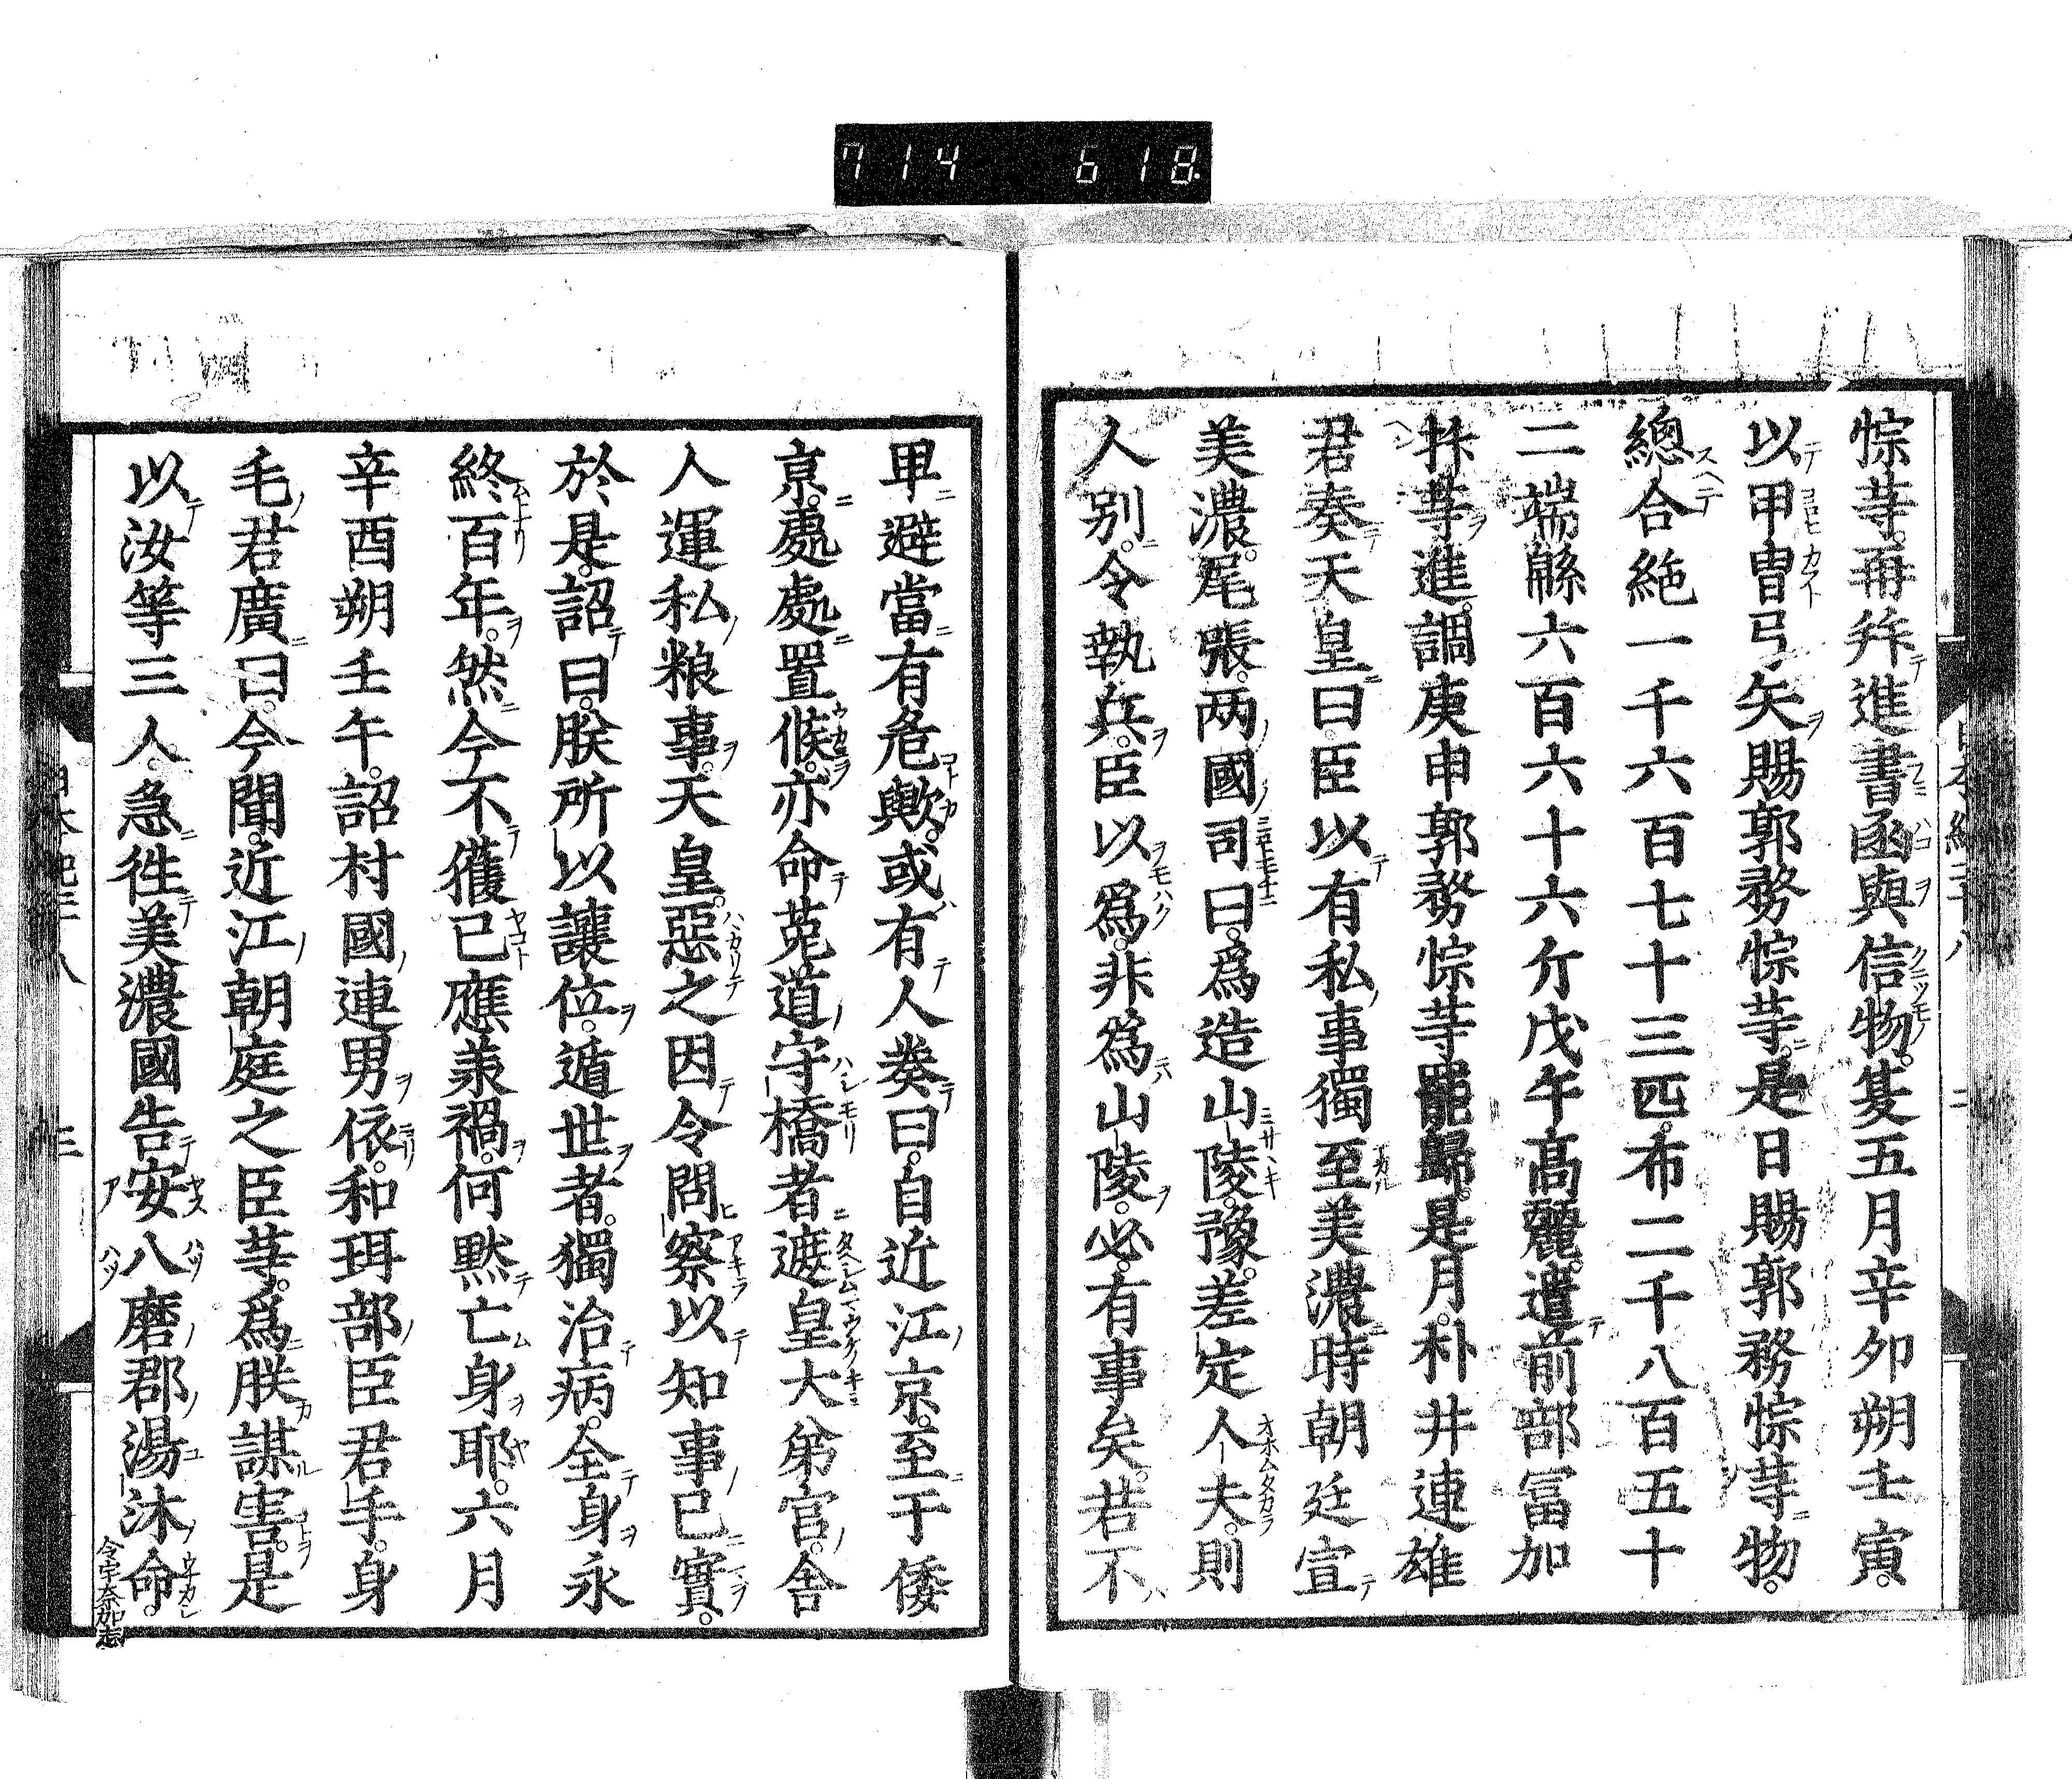 714 618
悰䓁再拜進書函與信物夏五月辛夘朔壬寅
以甲冑弓矢賜郭務悰䓁是日賜郭務悰䓁物
總合絁一千六百七十三匹布二千八百五十
二端緜六百六十六斤戊午髙麗遣前部冨加
抃䓁進調庚申郭務悰䓁罷歸是月朴井連雄
君奏天皇曰臣以有私事獨至美濃時朝廷宣
美濃尾張两國司曰爲造山陵豫差定人夫則
人别令執兵臣以爲非爲山陵必有事矣若不
早避當有危歟或有人奏曰自近江京至于倭
京處處置候亦命菟道守橋者遮皇大弟宮舎
人運私粮事天皇惡之因令問察以知事已實
於是詔曰朕所以讓位遁世者獨治病全身永
終百年然今不獲已應承禍何黙亡身耶六月
辛酉朔壬午詔村國連男依和珥部臣君手身
毛君廣曰今聞近江朝庭之臣䓁爲朕謀害是
以汝等三人急徃美濃國告安八磨郡湯沐令